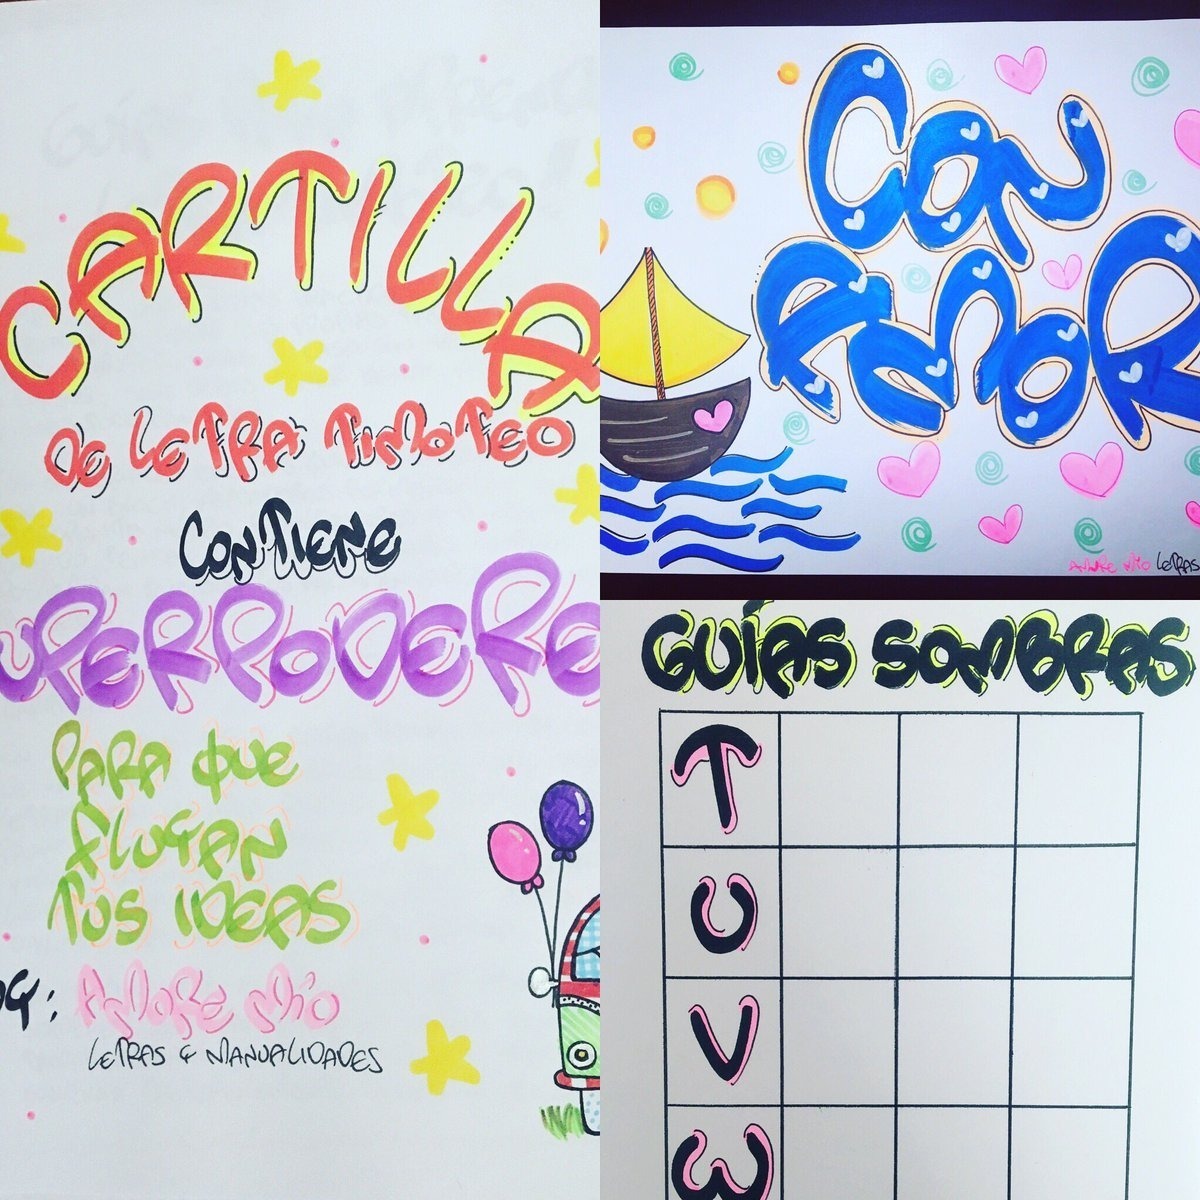 CARTILLA
DE LETRA TIMOTEO
CONTIENE
UPERPODERE
PARA QUE
FLUYAN
TUS IDEAS
Y: AMORE MÍO
LETRAS & MANUALIDADES
CON
AMOR
AMORE MÍO LETRAS
GUÍAS SOMBRAS
T
U
V
W